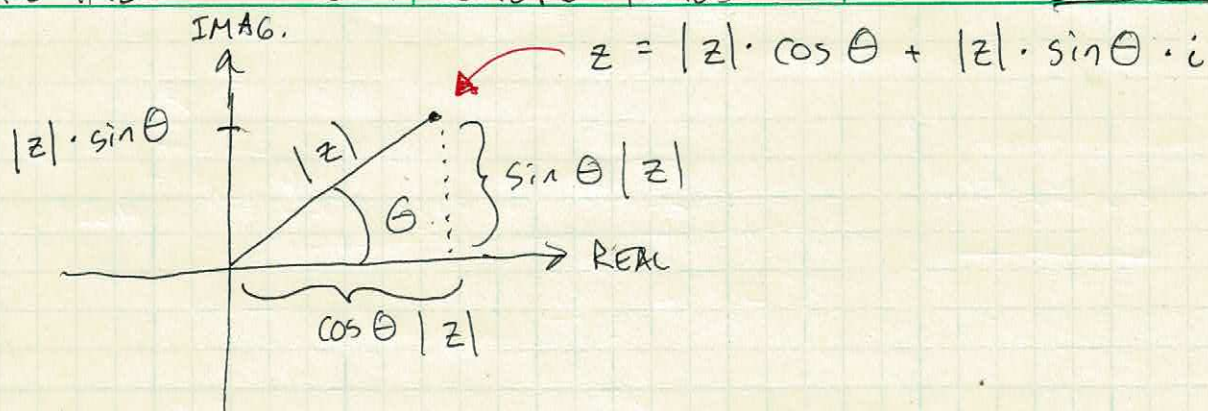 IMAG.
z = |z| · cos θ + |z| · sin θ · i
|z| · sin θ
|z|
θ
sin θ |z|
REAL
cos θ |z|